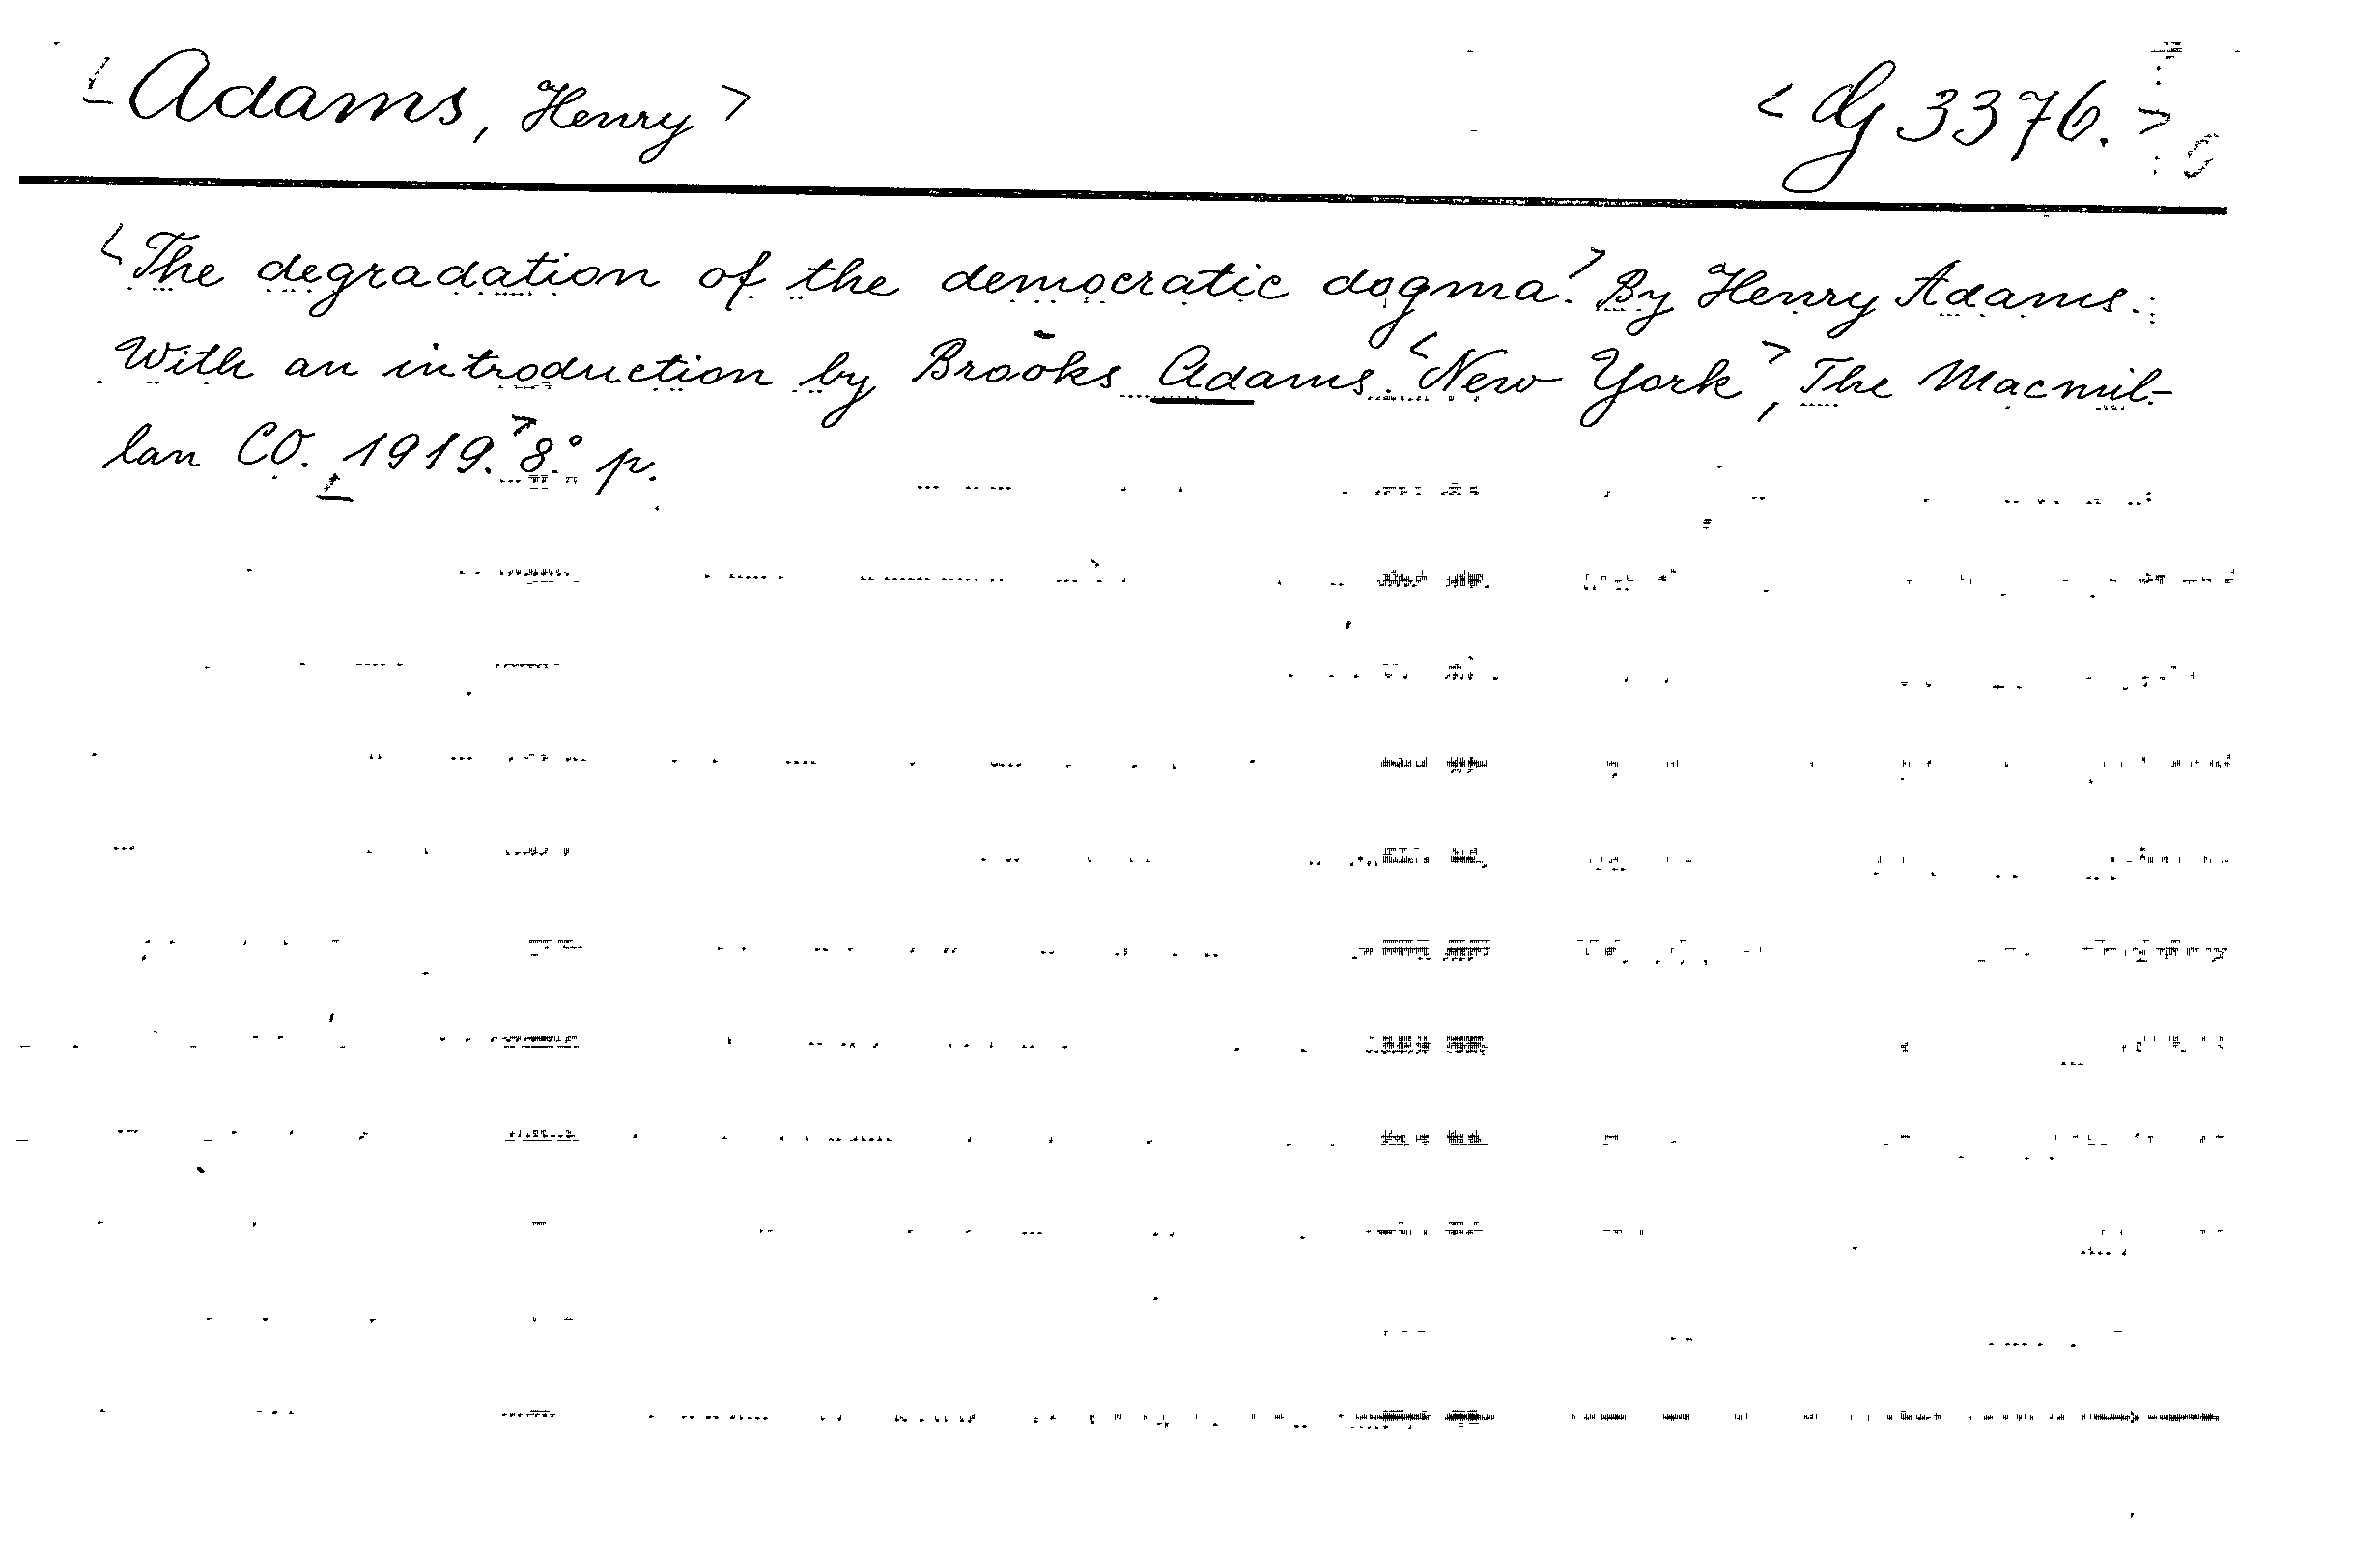 <Adams, Henry> <dg 3376.>
<The degradation of the democratic dogma.> By Henry Adams.
With an introduction by Brooks Adams. <New York>, The Macmil-
lan CO. 1919.> 8.° p.